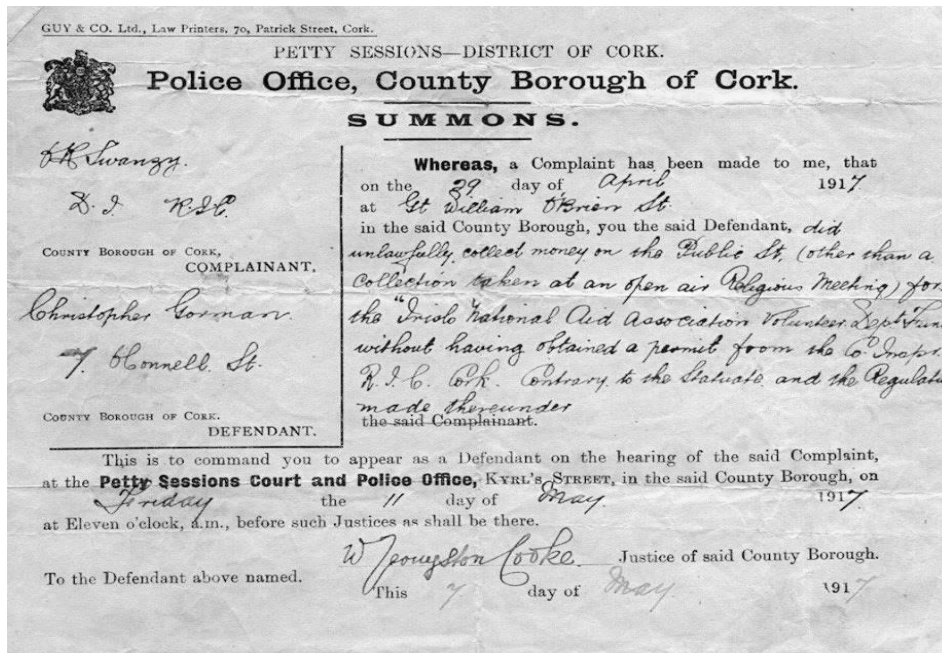 GUY & CO. Ltd., Law Printers, 70, Patrick Street, Cork.
PETTY SESSIONS—DISTRICT OF CORK.
Police Office, County Borough of Cork.
SUMMONS.
Swanzy.
D. I. R.I.C.
COUNTY BOROUGH OF CORK,
COMPLAINANT.
Christopher Gorman
7. OConnell St.
COUNTY BOROUGH OF CORK.
DEFENDANT.
Whereas, a Complaint has been made to me, that
on the 29 day of April 1917.
at Gt William O'Brien St.
in the said County Borough, you the said Defendant, did
unlawfully collect money on the Public St, (other than a
collection taken at an open air Religious Meeting) for
the "Irish National Aid Association Volunteer Dept Fun
without having obtained a permit from the Co Inspr.
R.I.C. Cork. Contrary to the Statuate and the Regulat
made thereunder
the said Complainant.
This is to command you to appear as a Defendant on the hearing of the said Complaint,
at the Petty Sessions Court and Police Office, KYRL'S STREET, in the said County Borough, on
Friday the 11 day of May. 1917
at Eleven o'clock, a.m., before such Justices as shall be there.
W Cooke. Justice of said County Borough.
To the Defendant above named.
This 7 day of May 1917